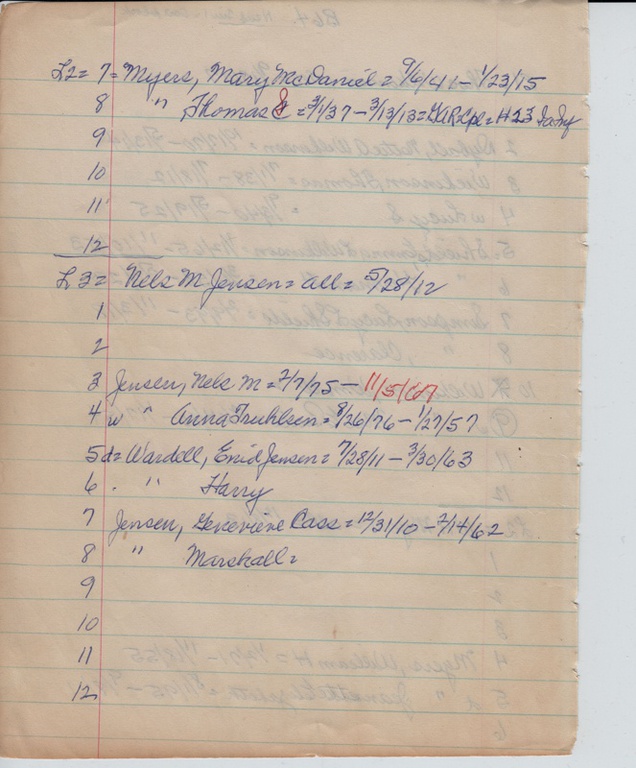 L2 = 7 = Myers, Mary McDaniel = 9/6/41 - 1/23/15
8 " Thomas = 3/1/37 - 3/13/13 = GAR Cpl = H 23
9
10
11
12
L 3 = Nels M Jensen = all = 5/28/12
1
2
3 Jensen, Nels M = 2/7/75 - 11/5/67
4 w " Anna Truhlsen = 8/26/76 - 1/27/57
5 d = Wardell, Enid Jensen = 7/28/11 - 3/30/63
6 . " Harry
7 Jensen, Genevieve Cass = 12/31/10 - 2/14/62
8 " Marshall =
9
10
11
12